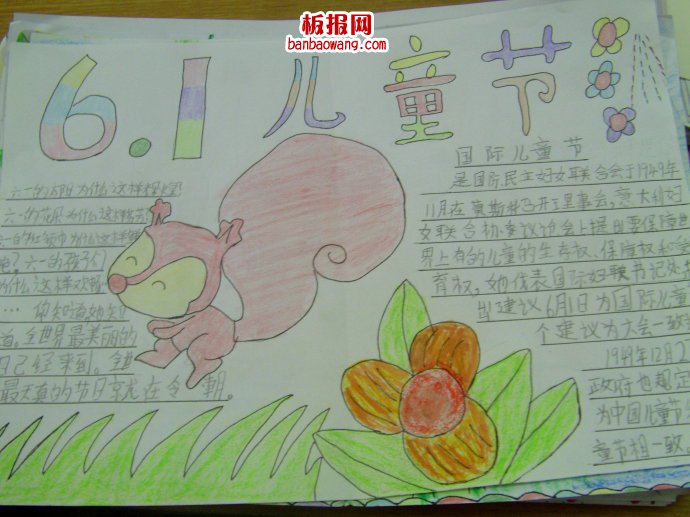 板报网
banbaowang.com
6.1儿童节
六一的 为什么这样
六一的花儿为什么这样
六一的红领巾为什么这样
六一的孩子们
为什么这样欢
… 你知道她知
道。全世界最美丽的
日已经来到。全世
最天真的节日就在今朝。
国际儿童节
是国际民主妇女联合会于1949年
11月在莫斯科召开理事会,意大利妇
女联合
界上有的儿童的生存权、保障权和
育权,她代表国际妇联书记处
出建议6月1日为国际儿童
个建议为大会一致
1949年12月2
政府也规定
为中国儿童节
童节相一致。